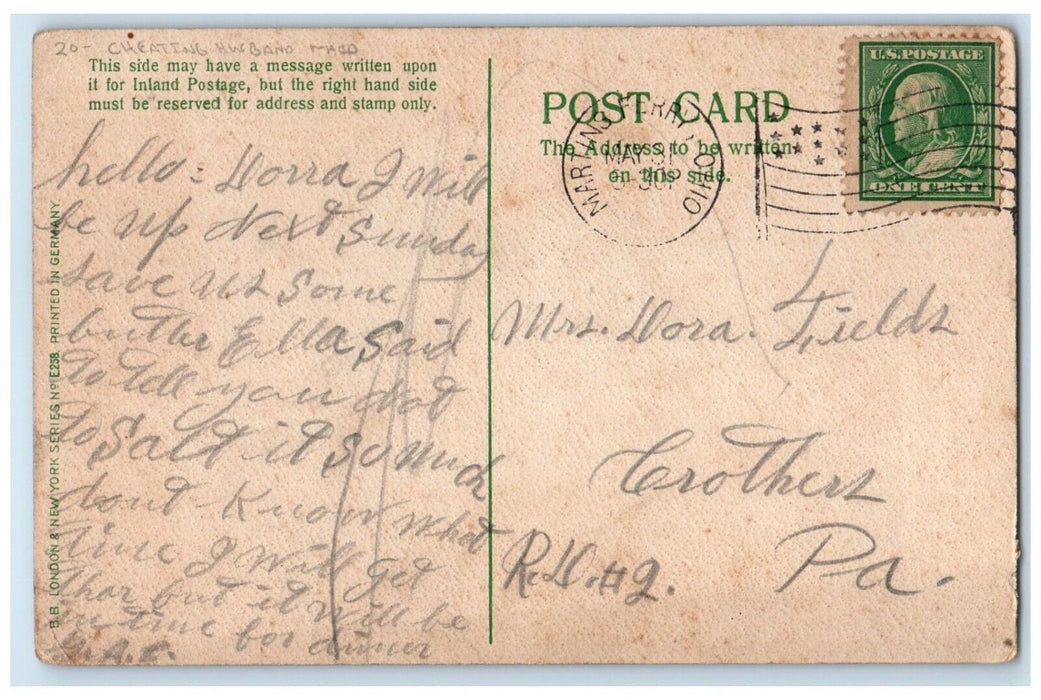 20- CHEATING HUSBAND
This side may have a message written upon
it for Inland Postage, but the right hand side
must be reserved for address and stamp only.
hello: Dorra I Will
be up Next Sunday
save us some
butter Ella Said
to tell you Not
to Salt it so much
dont Know what
time I Will get
thar but it Will be
in time for dinner
B.B. LONDON & NEW YORK SERIES No E258. PRINTED IN GERMANY
POST CARD
The Address to be written
on this side.
MARTINS FERRY OHIO
MAY 31
U.S. POSTAGE
ONE CENT
Mrs. Dora. Fields
Crothers
Pa.
R.D. #2.